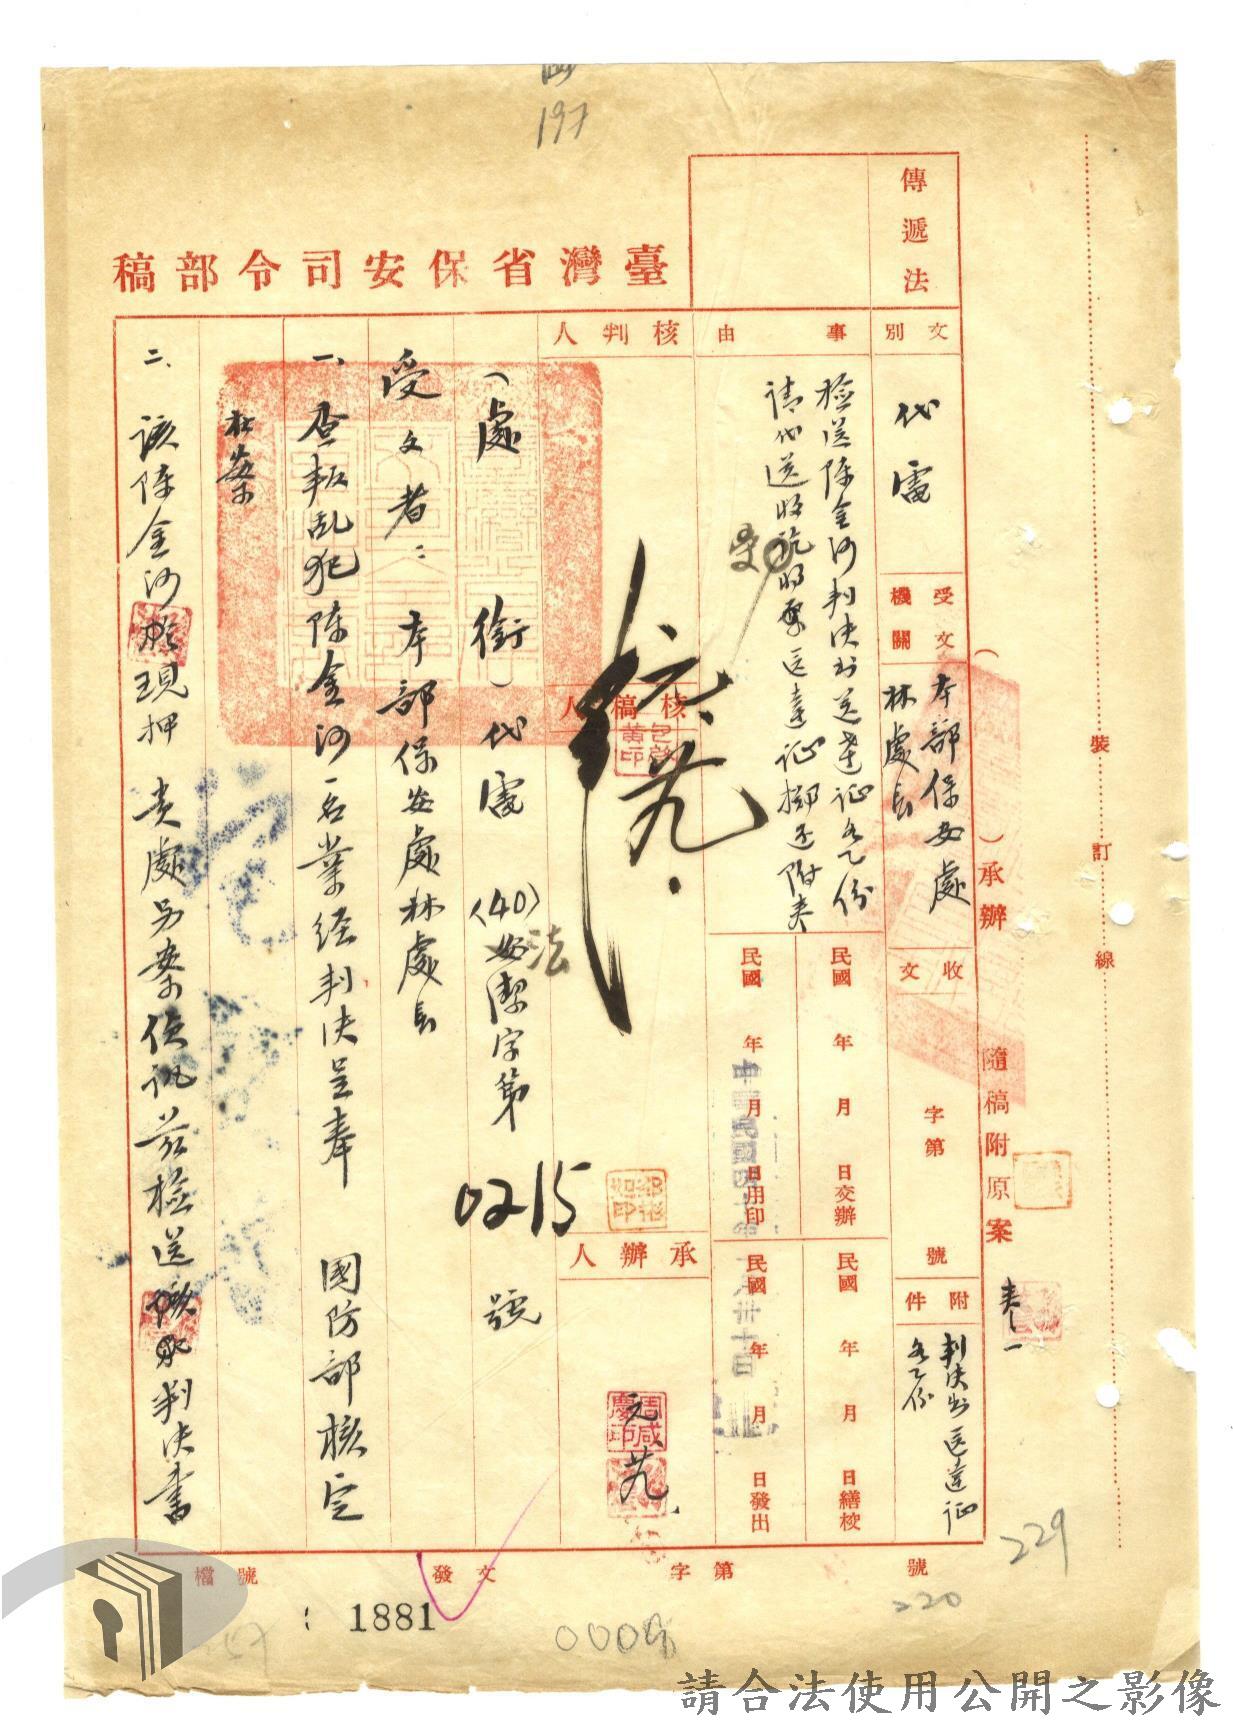 197
傳遞法
臺灣省保安司令部稿
文別
代電
受文機關
本部保安處
林處長
收文
字第
號
附件
判決書送達证
各乙份
事由
檢送陳金河判決書送達证各乙份
請代送收
送達证擲還附卷
民國 年 月 日交辦
民國 年 月 日繕校
民國 年 月 日用印
民國 年 月 日發出
中華民國四十年一月卅十日
核判人
核稿人
承辦人
周咸慶印
元
(處銜)代電
(40)安潔字第
法
0215
號
受文者:本部保安處林處長
一、查叛乱犯陳金河一名業经判決呈奉 國防部核定
在案
二、該陳金河於現押 貴處另案偵讯茲檢送 判決書
( )承辦 隨稿附原案
卷一
裝 訂 線
檔號
發文
字第
號
1881
229
220
請合法使用公開之影像